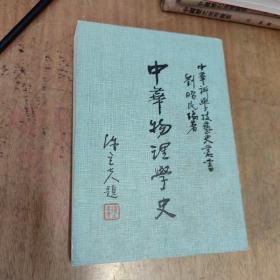 中華科學技藝史叢書
劉昭民編著
中華物理學史
陳立夫題